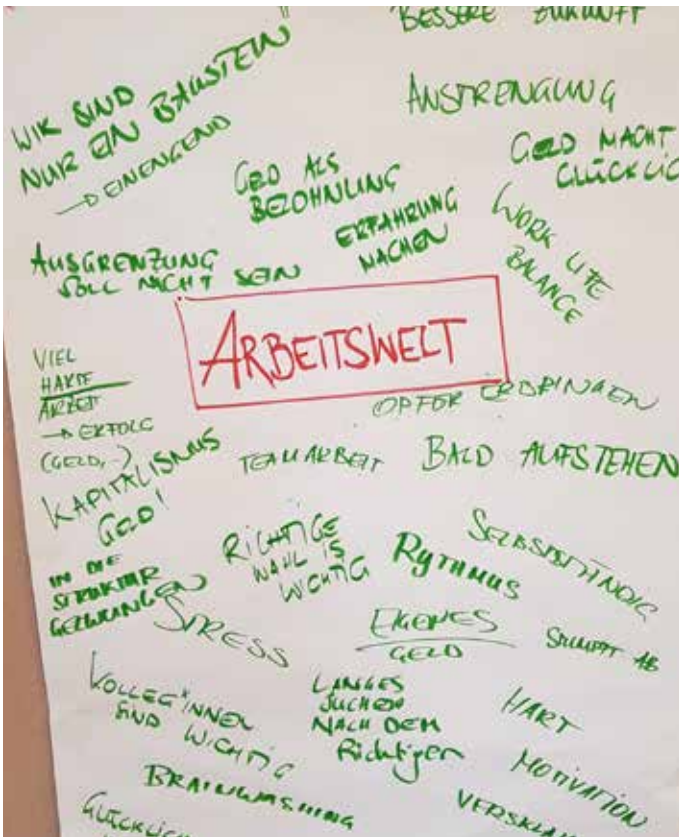 BESSERE ZUKUNFT
WIR SIND
NUR EIN BAUSTEIN"
→ EINENGEND
ANSTRENGUNG
GELD MACHT
GLÜCKLIC
GELD ALS
BELOHNUNG
ERFAHRUNG
MACHEN
WORK LIFE
BALANCE
AUSGRENZUNG
SOLL NICHT SEIN
ARBEITSWELT
VIEL
HARTE
ARBEIT
→ ERFOLG
(GELD, -)
OPFER ERBRINGEN
KAPITALISMUS
GELD!
TEAMARBEIT
BALD AUFSTEHEN
IN DIE
STRUKTUR
GEZWUNGEN
RICHTIGE
WAHL IS
WICHTIG
RYTHMUS
SELBSTSTÄNDIG
STRESS
EIGENES
GELD
STUMPFT AB
KOLLEG*INNEN
SIND WICHTIG
LANGES
SUCHEN
NACH DEM
Richtigen
HART
MOTIVATION
BRAINWASHING
VERSKLA
GLÜCKLICH